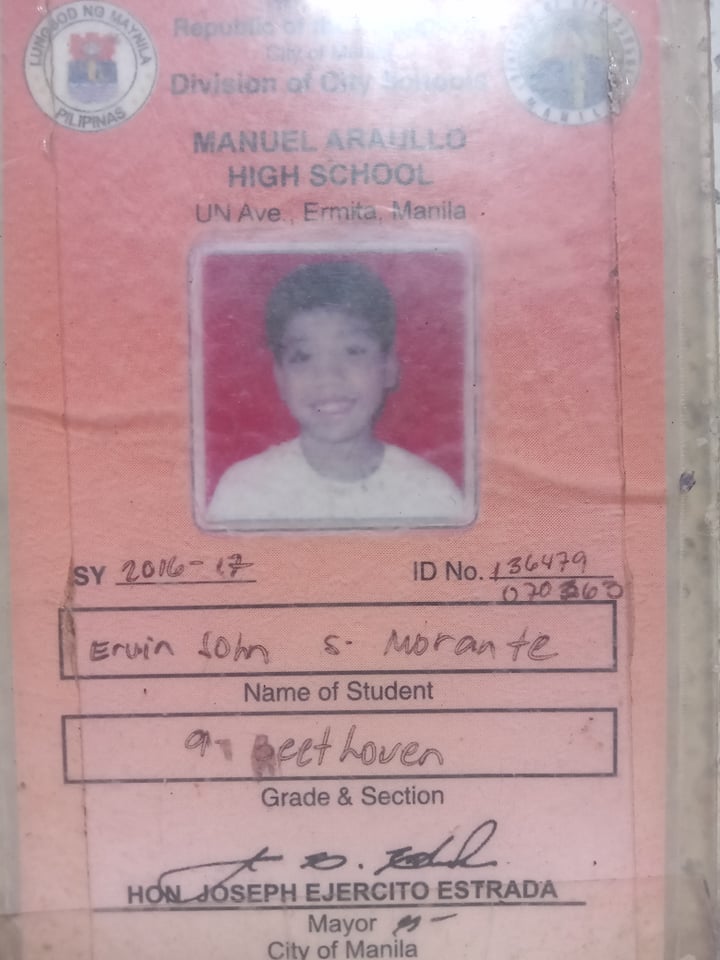 LUNGSOD NG MAYNILA
PILIPINAS
Republic of the
City of
Division of City Schools
MANILA
MANUEL ARAULLO
HIGH SCHOOL
UN Ave., Ermita, Manila
SY 2016-17
ID No. 136479
Ervin John S. Morante
Name of Student
9- Beethoven
Grade & Section
HON. JOSEPH EJERCITO ESTRADA
Mayor
City of Manila